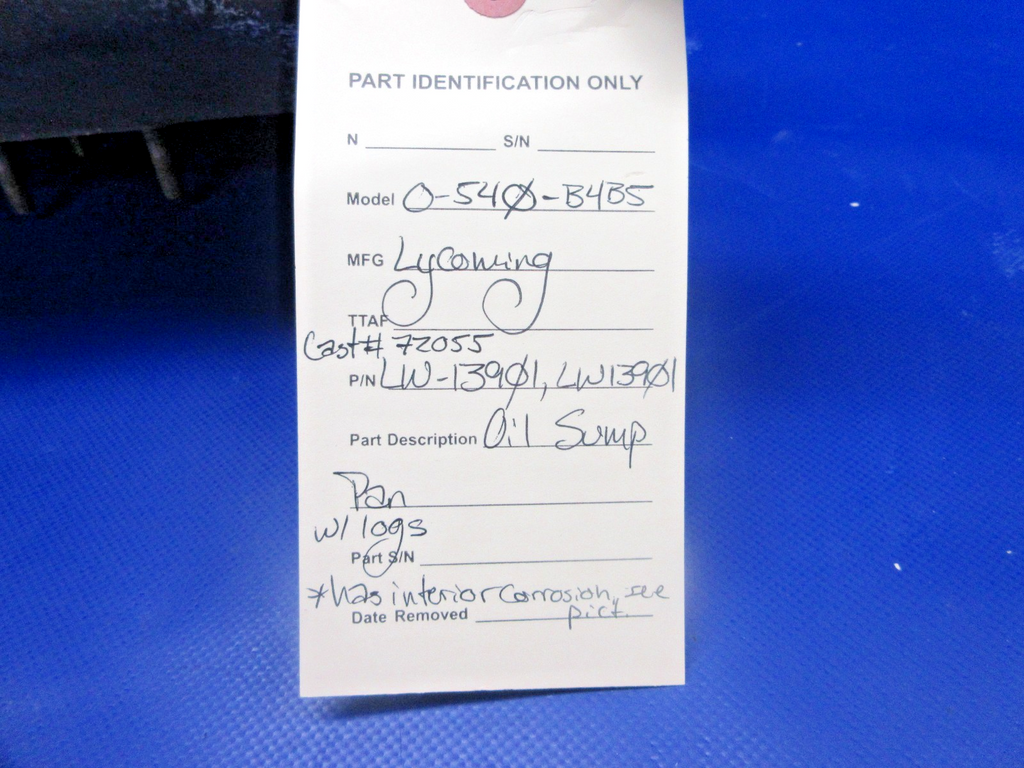 PART IDENTIFICATION ONLY
N S/N
Model O-540-B4B5
MFG Lycoming
TTAF
Cast# 72055
P/N LW-13901, LW13901
Part Description Oil Sump
Pan
w/ logs
Part S/N
*has interior corrosion, see
pict.
Date Removed